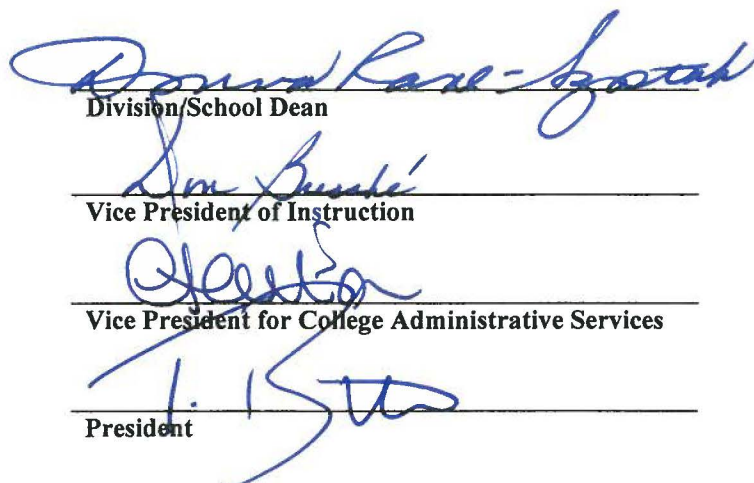 Donna Rane-Szostak
Division/School Dean
Don Busché
Vice President of Instruction
Vice President for College Administrative Services
T.
President